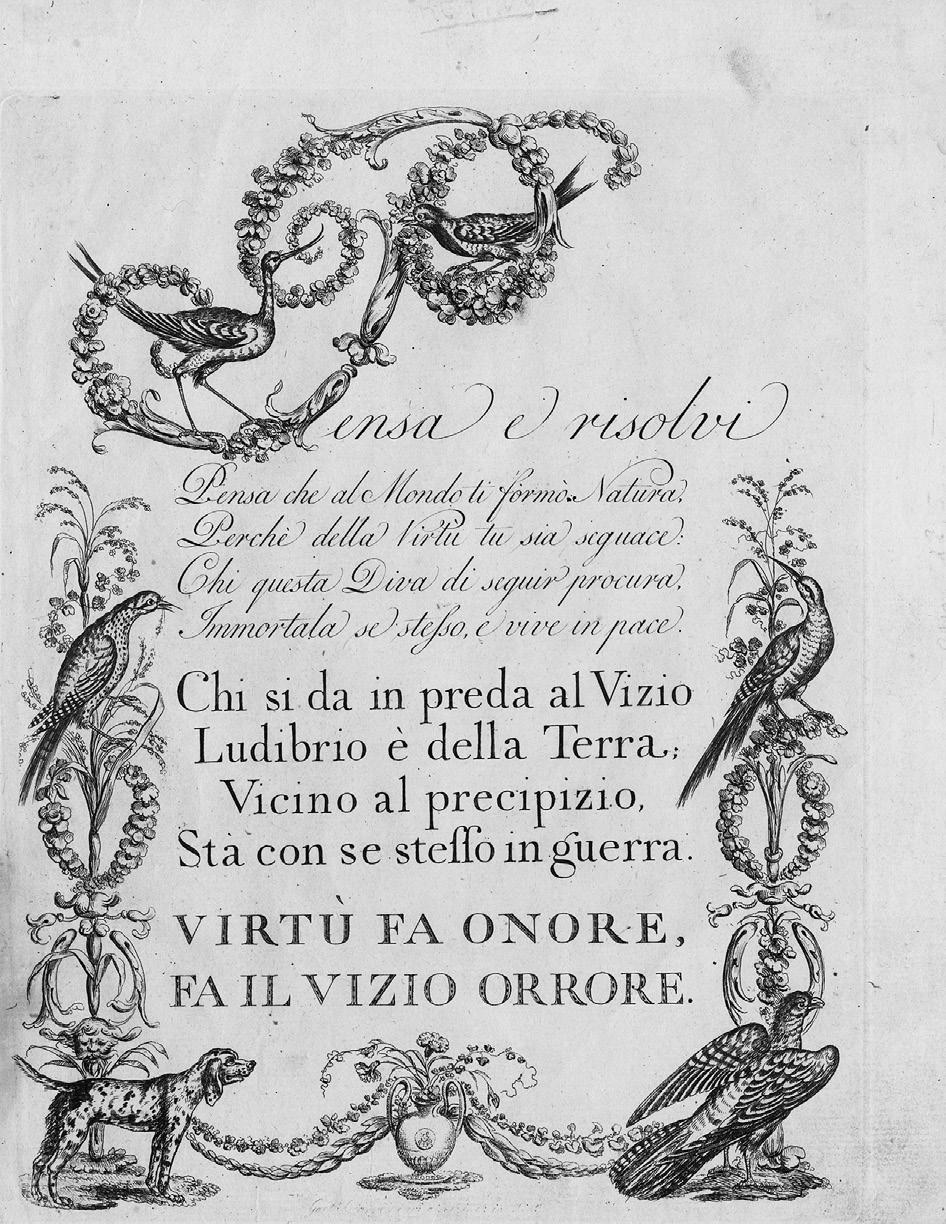 Pensa e risolvi
Pensa che al Mondo ti formò Natura,
Perchè della Virtù tu sia seguace:
Chi questa Diva di seguir procura,
Immortala se stesso, e vive in pace.
Chi si da in preda al Vizio
Ludibrio è della Terra;
Vicino al precipizio,
Sta con se stesso in guerra.
VIRTÙ FA ONORE,
FA IL VIZIO ORRORE.